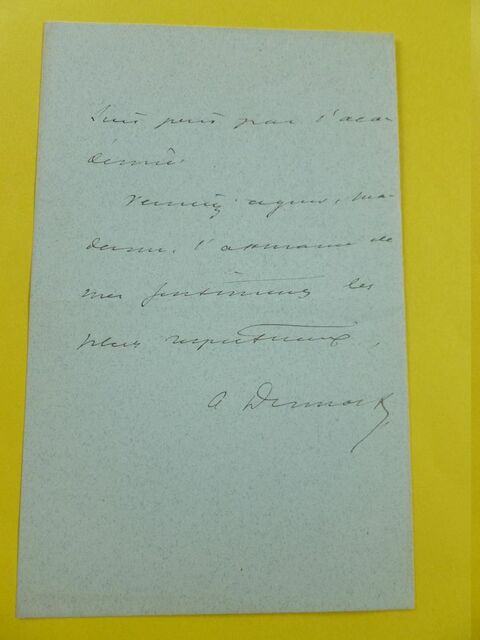 suis pris par l'aca-
démie.
Veuillez agréer, ma-
dame, l'assurance de
mes sentiments les
plus respectueux,
A